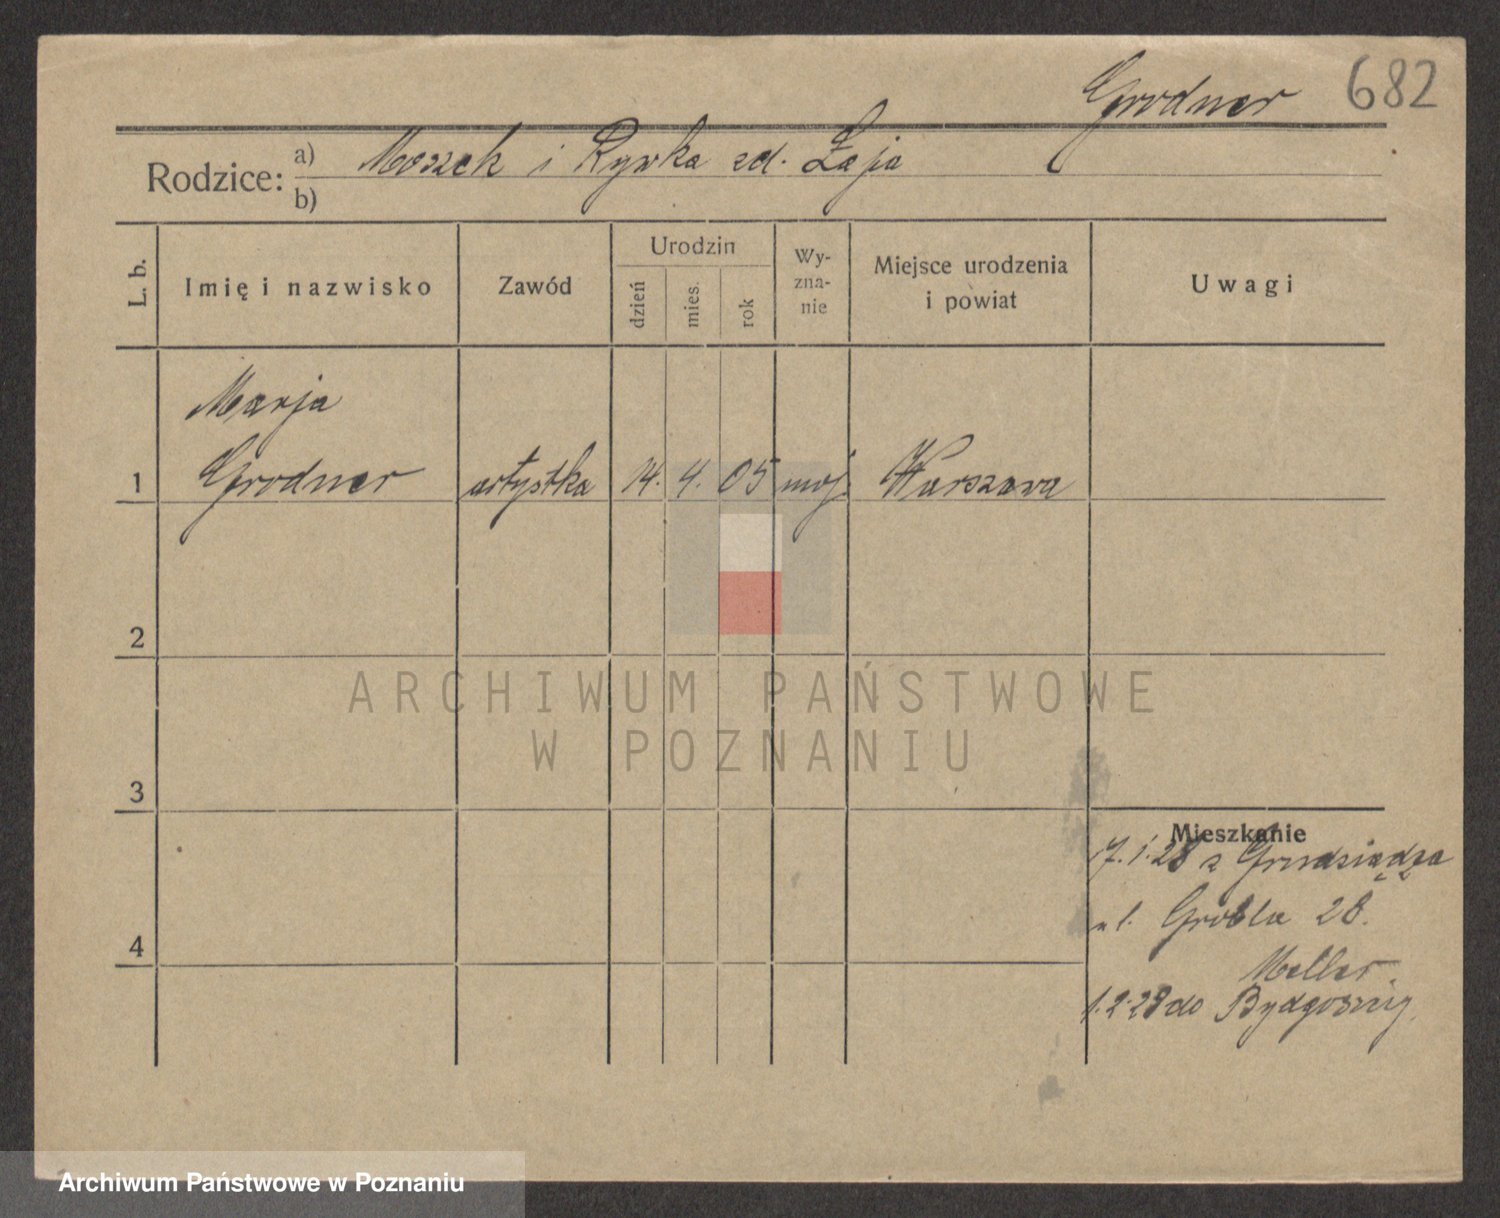 Grodner 682
Rodzice: a) Moszek i Rywka zd. Łaja
b)
L. b. Imię i nazwisko Zawód Urodzin dzień mies. rok Wy-zna-nie Miejsce urodzenia i powiat Uwagi
Marja
1 Grodner artystka 14. 4. 05 moj. Warszawa
2
ARCHIWUM PAŃSTWOWE
W POZNANIU
3
Mieszkanie
17.1.28 z Grudziądza
ul. Grobla 28.
4
Meller.
1.2.28 do Bydgoszczy.
Archiwum Państwowe w Poznaniu